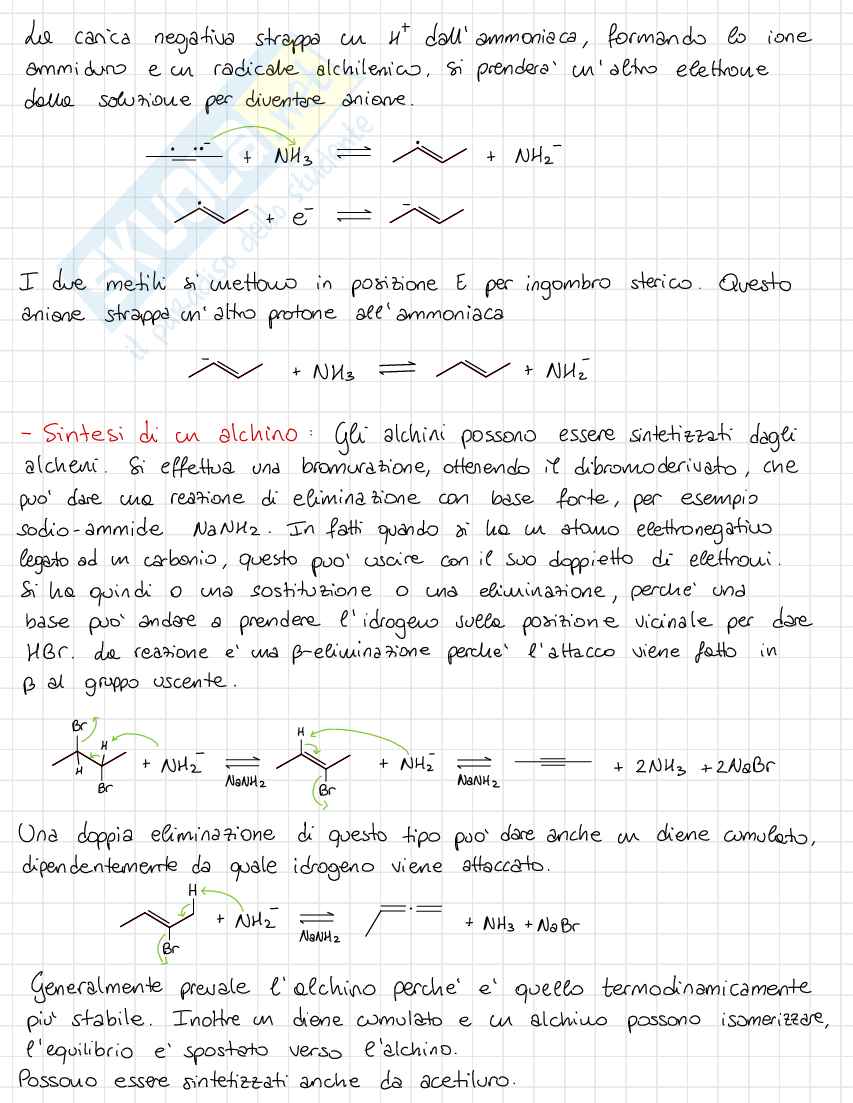 La carica negativa strappa un H⁺ dall'ammoniaca, formando lo ione
ammiduro e un radicale alchilenico, si prenderà un'altro elettrone
dalla soluzione per diventare anione.
+ NH₃ ⇌ + NH₂⁻
+ e⁻ ⇌
I due metili si mettono in posizione E per ingombro sterico. Questo
anione strappa un'altro protone all'ammoniaca
+ NH₃ ⇌ + NH₂⁻
- Sintesi di un alchino: Gli alchini possono essere sintetizzati dagli
alcheni. Si effettua una bromurazione, ottenendo il dibromoderivato, che
può dare una reazione di eliminazione con base forte, per esempio
sodio-ammide NaNH₂. In fatti quando si ha un atomo elettronegativo
legato ad un carbonio, questo può uscire con il suo doppietto di elettroni.
Si ha quindi o una sostituzione o una eliminazione, perché una
base può andare a prendere l'idrogeno sulla posizione vicinale per dare
HBr. La reazione è una β-eliminazione perché l'attacco viene fatto in
β al gruppo uscente.
Br H H Br + NH₂⁻ ⇌ NaNH₂ H Br + NH₂⁻ ⇌ NaNH₂ + 2NH₃ + 2NaBr
Una doppia eliminazione di questo tipo può dare anche un diene cumulato,
dipendentemente da quale idrogeno viene attaccato.
H Br + NH₂⁻ ⇌ NaNH₂ + NH₃ + NaBr
Generalmente prevale l'alchino perché è quello termodinamicamente
più stabile. Inoltre un diene cumulato e un alchino possono isomerizzare,
l'equilibrio è spostato verso l'alchino.
Possono essere sintetizzati anche da acetiluro.
SKUOLA.net
il paradiso dello studente